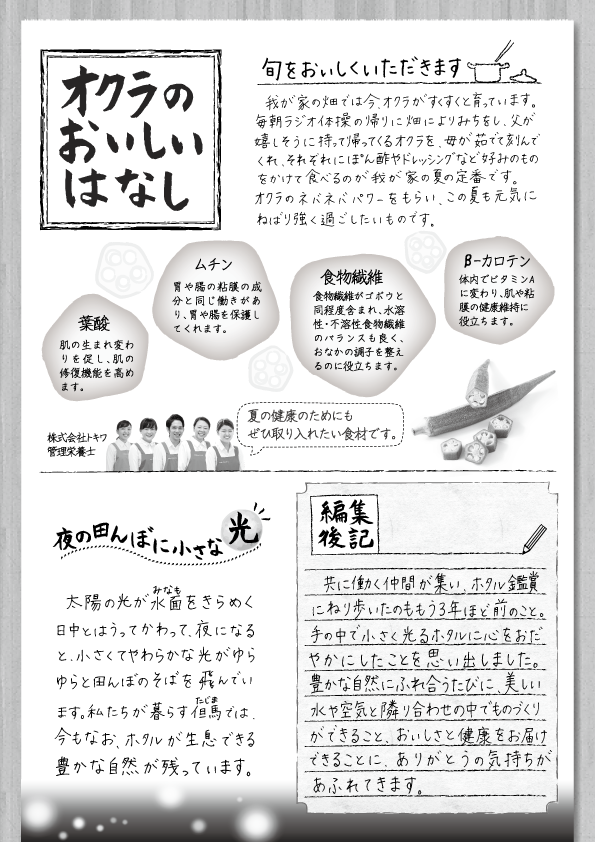 オクラの
おいしい
はなし
旬をおいしくいただきます
我が家の畑では今、オクラがすくすくと育っています。
毎朝ラジオ体操の帰りに畑によりみちをし、父が
嬉しそうに持って帰ってくるオクラを、母が茹でて刻んで
くれ、それぞれにぽん酢やドレッシングなど好みのもの
をかけて食べるのが我が家の夏の定番です。
オクラのネバネバパワーをもらい、この夏も元気に
ねばり強く過ごしたいものです。
葉酸
肌の生まれ変わ
りを促し、肌の
修復機能を高め
ます。
ムチン
胃や腸の粘膜の成
分と同じ働きがあ
り、胃や腸を保護し
てくれます。
食物繊維
食物繊維がゴボウと
同程度含まれ、水溶
性・不溶性食物繊維
のバランスも良く、
おなかの調子を整え
るのに役立ちます。
β-カロテン
体内でビタミンA
に変わり、肌や粘
膜の健康維持に
役立ちます。
株式会社トキワ
管理栄養士
夏の健康のためにも
ぜひ取り入れたい食材です。
夜の田んぼに小さな光
太陽の光が水面をきらめく
みなも
日中とはうってかわって、夜になる
と、小さくてやわらかな光がゆら
ゆらと田んぼのそばを飛んでい
ます。私たちが暮らす但馬では、
たじま
今もなお、ホタルが生息できる
豊かな自然が残っています。
編集
後記
共に働く仲間が集い、ホタル鑑賞
にねり歩いたのももう3年ほど前のこと。
手の中で小さく光るホタルに心をおだ
やかにしたことを思い出しました。
豊かな自然にふれ合うたびに、美しい
水や空気と隣り合わせの中でものづくり
ができること、おいしさと健康をお届け
できることに、ありがとうの気持ちが
あふれてきます。